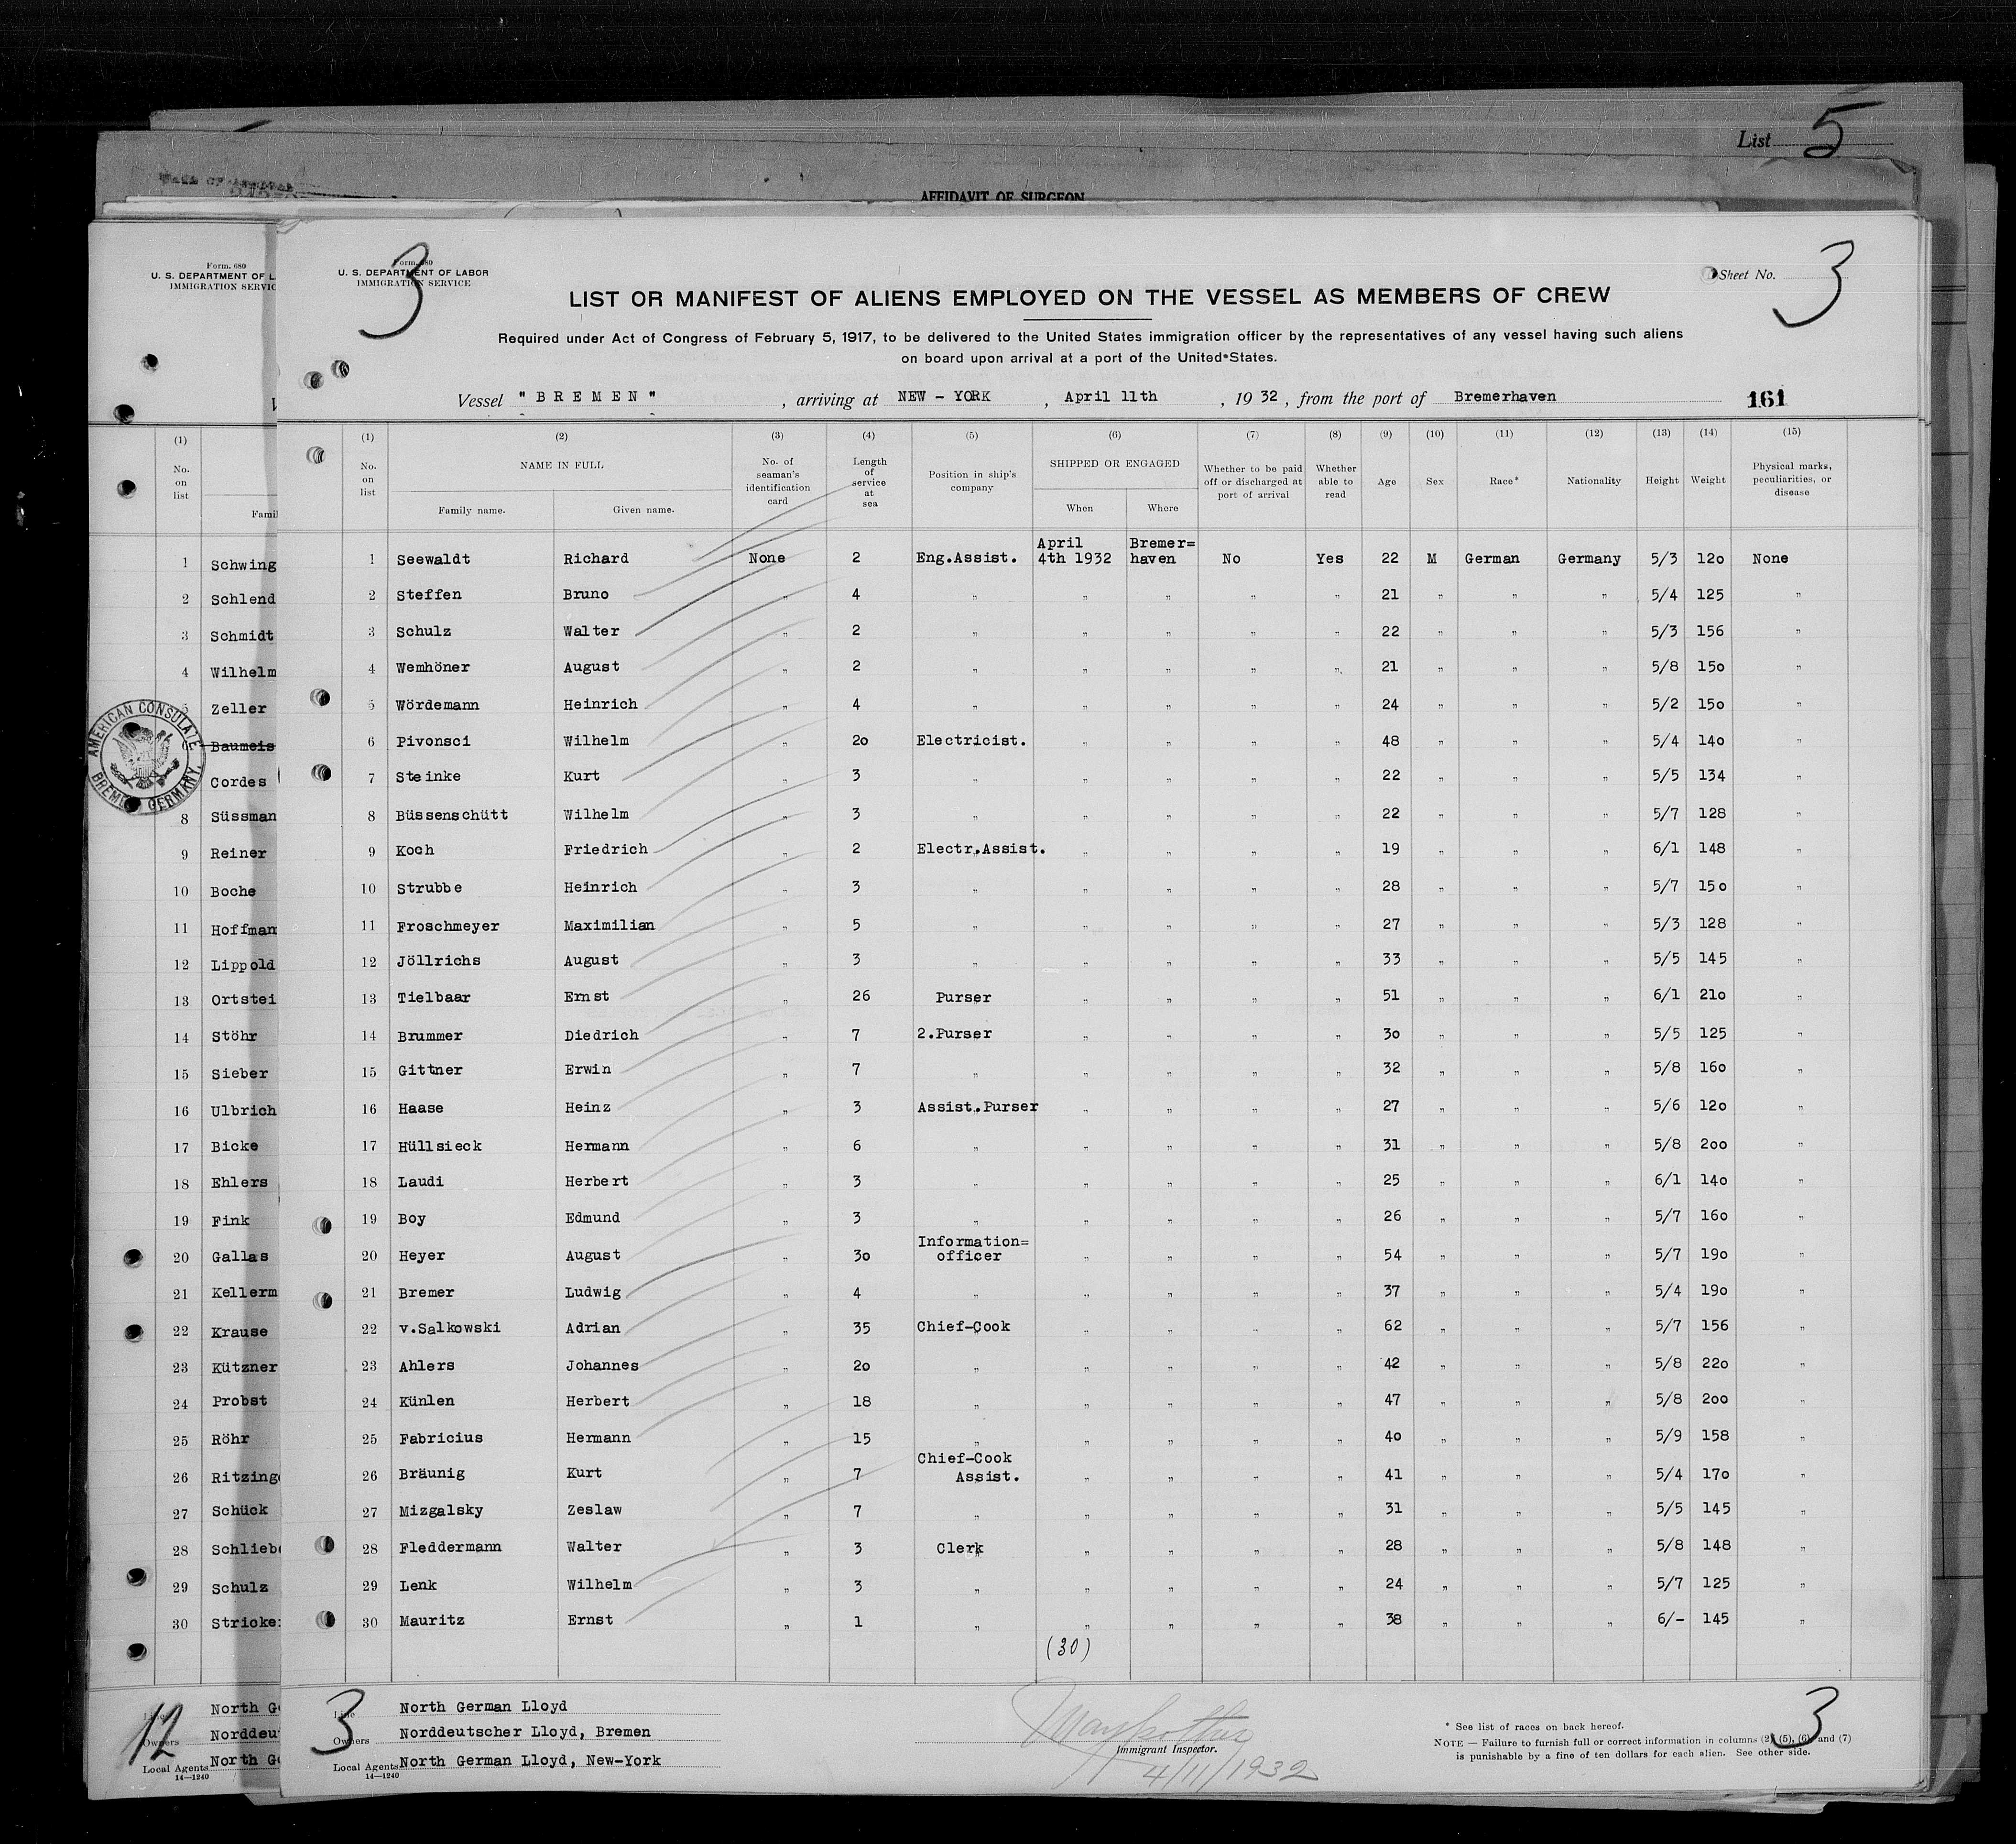 List 5
AFFIDAVIT OF SURGEON
Form. 680
U. S. DEPARTMENT OF L
IMMIGRATION SERVIC
(1)
No.
on
list
Famil
1 Schwing
2 Schlend
3 Schmidt
4 Wilhelm
5 Zeller
6 Baumeis
Cordes
8 Süssman
9 Reiner
10 Boche
11 Hoffman
12 Lippold
13 Ortstei
14 Stöhr
15 Sieber
16 Ulbrich
17 Bicke
18 Ehlers
19 Fink
20 Gallas
21 Kellerm
22 Krause
23 Kützner
24 Probst
25 Röhr
26 Ritzing
27 Schück
28 Schlieb
29 Schulz
30 Stricke
AMERICAN CONSULATE
BREMEN GERMANY.
12
North G
Owners Norddeu
Local Agents North G
14—1240
3
Form. 680
U. S. DEPARTMENT OF LABOR
IMMIGRATION SERVICE
Sheet No. 3
LIST OR MANIFEST OF ALIENS EMPLOYED ON THE VESSEL AS MEMBERS OF CREW
Required under Act of Congress of February 5, 1917, to be delivered to the United States immigration officer by the representatives of any vessel having such aliens
on board upon arrival at a port of the United States.
Vessel "BREMEN", arriving at NEW-YORK, April 11th, 1932, from the port of Bremerhaven 161
(1) (2) (3) (4) (5) (6) (7) (8) (9) (10) (11) (12) (13) (14) (15)
No. on list NAME IN FULL Family name. Given name. No. of seaman's identification card Length of service at sea Position in ship's company SHIPPED OR ENGAGED When Where Whether to be paid off or discharged at port of arrival Whether able to read Age Sex Race* Nationality Height Weight Physical marks, peculiarities, or disease
1 Seewaldt Richard None 2 Eng.Assist. April 4th 1932 Bremer=haven No Yes 22 M German Germany 5/3 120 None
2 Steffen Bruno " 4 " " " " " 21 " " " 5/4 125 "
3 Schulz Walter " 2 " " " " " 22 " " " 5/3 156 "
4 Wemhöner August " 2 " " " " " 21 " " " 5/8 150 "
5 Wördemann Heinrich " 4 " " " " " 24 " " " 5/2 150 "
6 Pivonsci Wilhelm " 20 Electricist. " " " " 48 " " " 5/4 140 "
7 Steinke Kurt " 3 " " " " " 22 " " " 5/5 134 "
8 Büssenschütt Wilhelm " 3 " " " " " 22 " " " 5/7 128 "
9 Koch Friedrich " 2 Electr.Assist. " " " " 19 " " " 6/1 148 "
10 Strubbe Heinrich " 3 " " " " " 28 " " " 5/7 150 "
11 Froschmeyer Maximilian " 5 " " " " " 27 " " " 5/3 128 "
12 Jöllrichs August " 3 " " " " " 33 " " " 5/5 145 "
13 Tielbaar Ernst " 26 Purser " " " " 51 " " " 6/1 210 "
14 Brummer Diedrich " 7 2.Purser " " " " 30 " " " 5/5 125 "
15 Gittner Erwin " 7 " " " " " 32 " " " 5/8 160 "
16 Haase Heinz " 3 Assist.Purser " " " " 27 " " " 5/6 120 "
17 Hüllsieck Hermann " 6 " " " " " 31 " " " 5/8 200 "
18 Laudi Herbert " 3 " " " " " 25 " " " 6/1 140 "
19 Boy Edmund " 3 " " " " " 26 " " " 5/7 160 "
20 Heyer August " 30 Information=officer " " " " 54 " " " 5/7 190 "
21 Bremer Ludwig " 4 " " " " " 37 " " " 5/4 190 "
22 v.Salkowski Adrian " 35 Chief-Cook " " " " 62 " " " 5/7 156 "
23 Ahlers Johannes " 20 " " " " " 42 " " " 5/8 220 "
24 Künlen Herbert " 18 " " " " " 47 " " " 5/8 200 "
25 Fabricius Hermann " 15 " " " " " 40 " " " 5/9 158 "
26 Bräunig Kurt " 7 Chief-Cook Assist. " " " " 41 " " " 5/4 170 "
27 Mizgalsky Zeslaw " 7 " " " " " 31 " " " 5/5 145 "
28 Fleddermann Walter " 3 Clerk " " " " 28 " " " 5/8 148 "
29 Lenk Wilhelm " 3 " " " " " 24 " " " 5/7 125 "
30 Mauritz Ernst " 1 " " " " " 38 " " " 6/- 145 "
(30)
3 3
Line North German Lloyd
Owners Norddeutscher Lloyd, Bremen
Local Agents North German Lloyd, New-York
14—1240
Immigrant Inspector.
4/11/1932
* See list of races on back hereof.
NOTE — Failure to furnish full or correct information in columns (2), (5), (6), and (7)
is punishable by a fine of ten dollars for each alien. See other side.